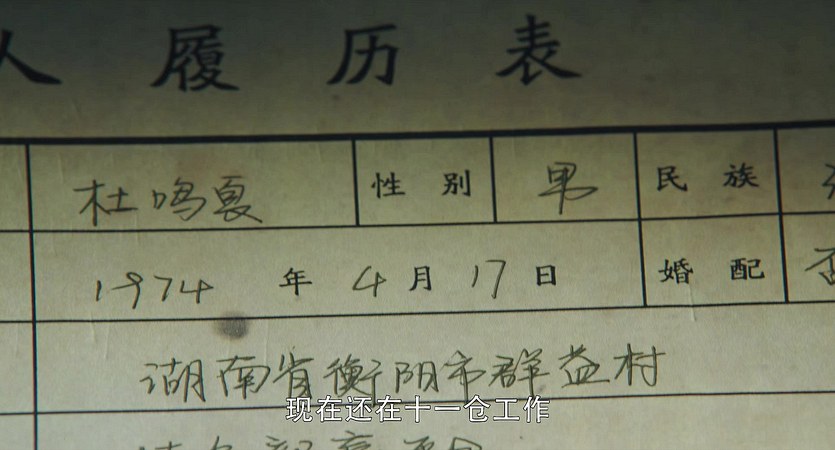 人 履 历 表
杜鸣夏 性 别 男 民 族
1974 年 4 月 17 日 婚 配 否
湖南省衡阴市群益村
现在还在十一仓工作